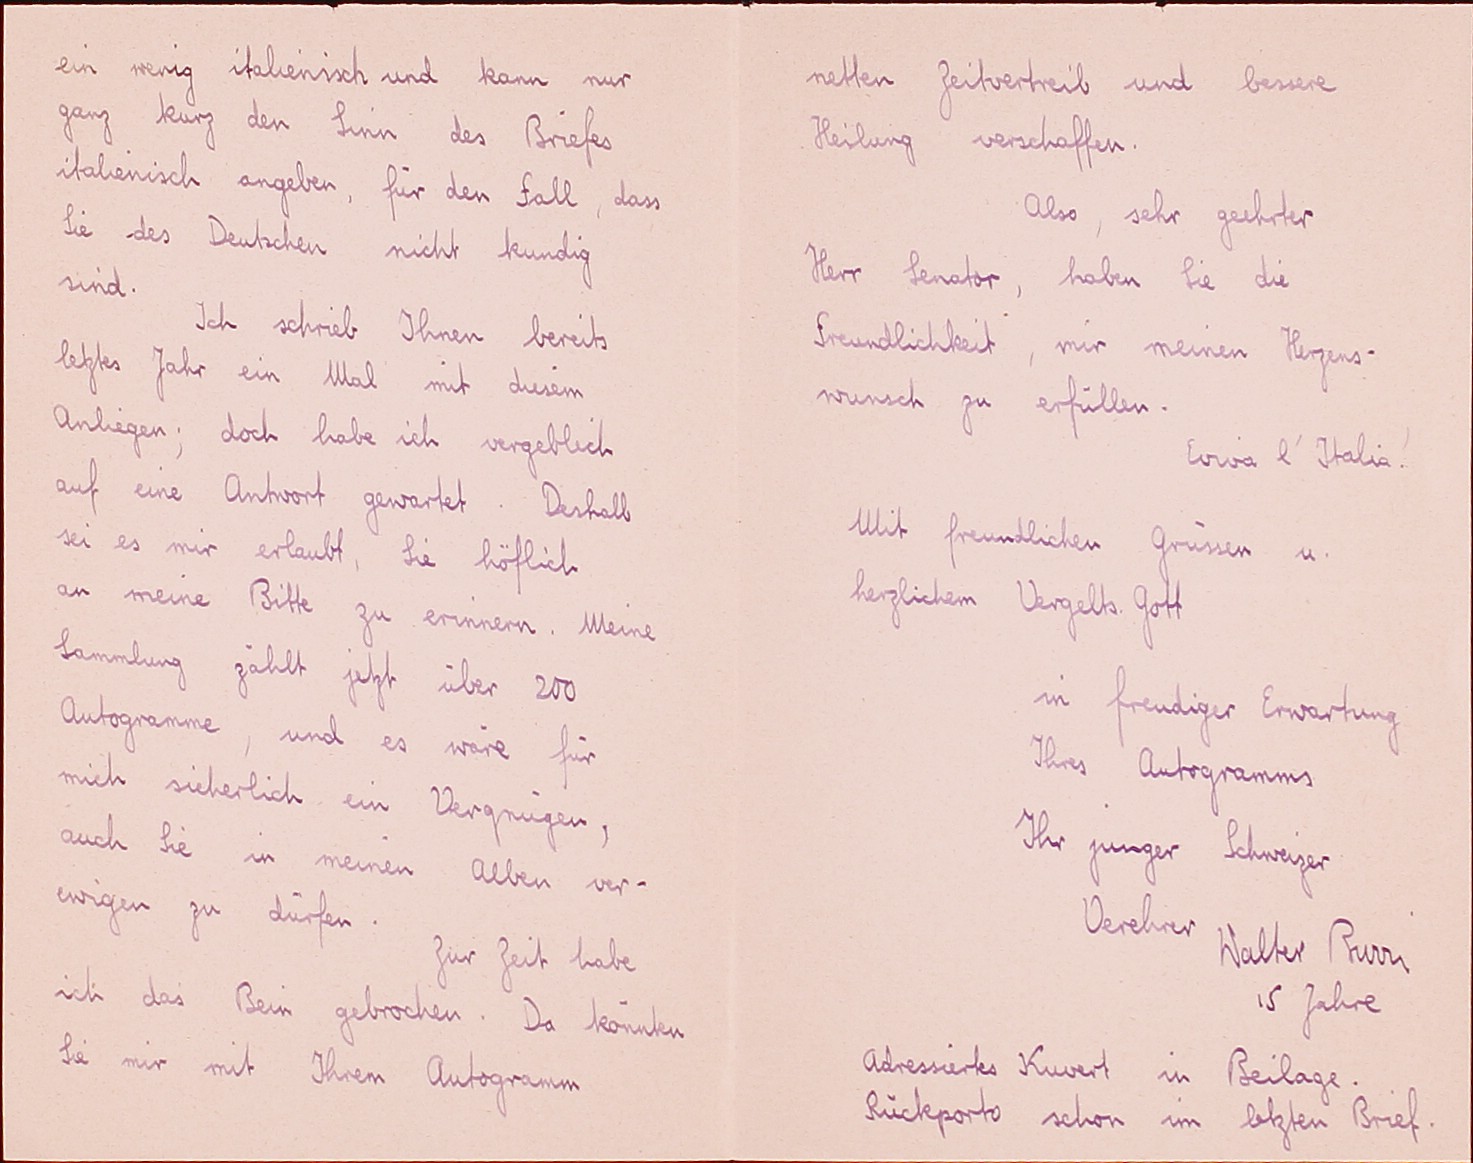 ein wenig italienisch und kann nur
ganz kurz den Sinn des Briefes
italienisch angeben, für den Fall, dass
Sie des Deutschen nicht kundig
sind.
Ich schrieb Ihnen bereits
letztes Jahr ein Mal mit diesem
Anliegen; doch habe ich vergeblich
auf eine Antwort gewartet. Deshalb
sei es mir erlaubt, Sie höflich
an meine Bitte zu erinnern. Meine
Sammlung zählt jetzt über 200
Autogramme, und es wäre für
mich sicherlich ein Vergnügen,
auch Sie in meinen Alben ver-
ewigen zu dürfen.
Zur Zeit habe
ich das Bein gebrochen. Da könnten
Sie mir mit Ihrem Autogramm
netten Zeitvertreib und bessere
Heilung verschaffen.
Also, sehr geehrter
Herr Senator, haben Sie die
Freundlichkeit, mir meinen Herzens-
wunsch zu erfüllen.
Evviva l'Italia!
Mit freundlichen Grüssen u.
herzlichem Vergelts Gott
in freudiger Erwartung
Ihres Autogramms
Ihr junger Schweizer
Verehrer Walter Burri
15 Jahre
Adressiertes Kuvert in Beilage.
Rückporto schon im letzten Brief.